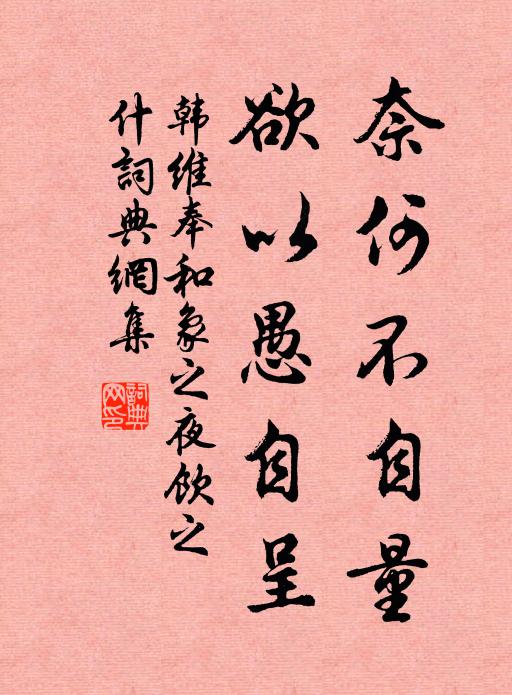 奈何不自量
欲以愚自呈
韩维奉和象之夜饮之
什詞典網集
詞典
网印